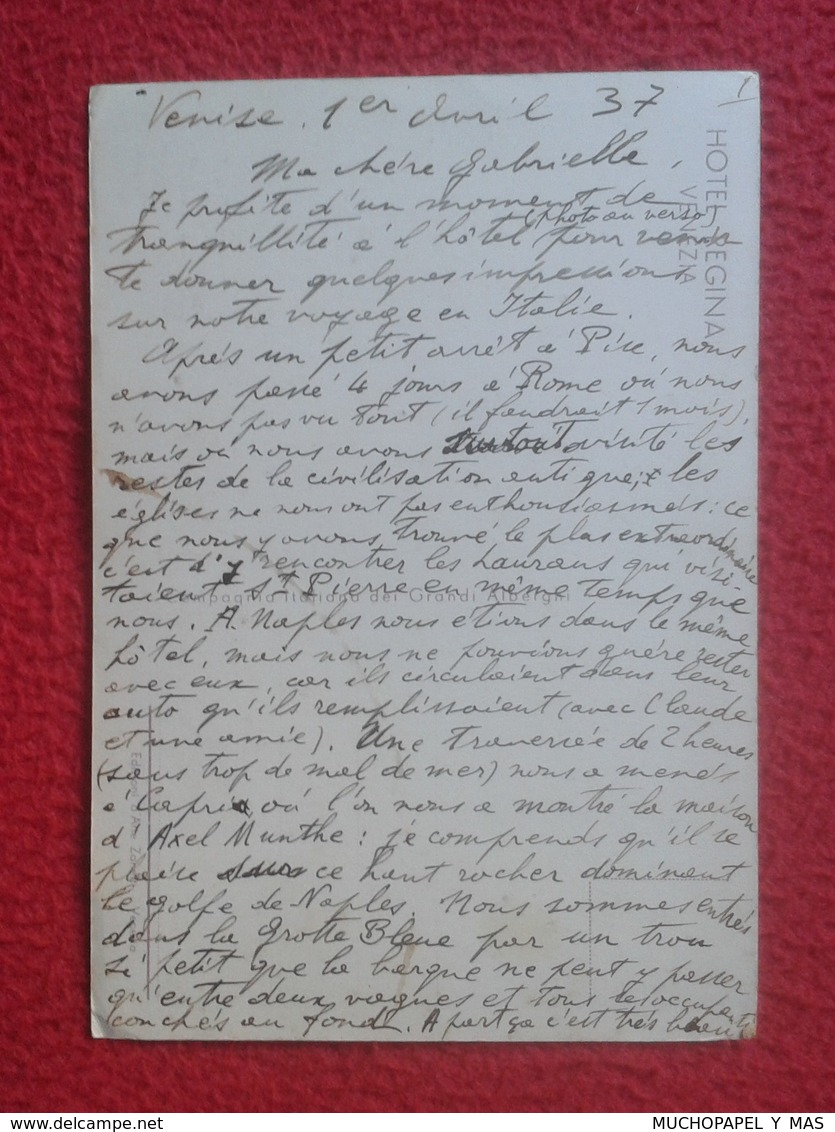 1
Venise. 1er Avril 37
HOTEL REGINA
VENEZIA
Ma chère Gabrielle,
Je profite d'un moment de
(photo au verso)
tranquillité à l'hôtel pour
te donner quelques impressions
sur notre voyage en Italie.
Après un petit arrêt à Pise, nous
avons passé 4 jours à Rome où nous
n'avons pas vu tout (il faudrait 1 mois),
mais où nous avons surtout visité les
restes de la civilisation antique; les
églises ne nous ont pas enthousiasmés: ce
que nous y avons trouvé le plus extraordinaire
c'est d'y rencontrer les Laurans qui visi-
taient St Pierre en même temps que
Compagnia Italiana dei Grandi Alberghi
nous. A Naples nous étions dans le même
hôtel, mais nous ne pouvions guère rester
avec eux, car ils circulaient dans leur
auto qu'ils remplissaient (avec Claude
et une amie). Une traversée de 2 heures
(sans trop de mal de mer) nous a menés
à Capri où l'on nous a montré la maison
d'Axel Munthe: je comprends qu'il se
plaise sur ce haut rocher dominant
le golfe de Naples. Nous sommes entrés
dans la Grotte Bleue par un trou
si petit que la barque ne peut y passer
qu'entre deux vagues et tous les occupants
couchés au fond. A part ça c'est très beau
MUCHOPAPEL Y MAS